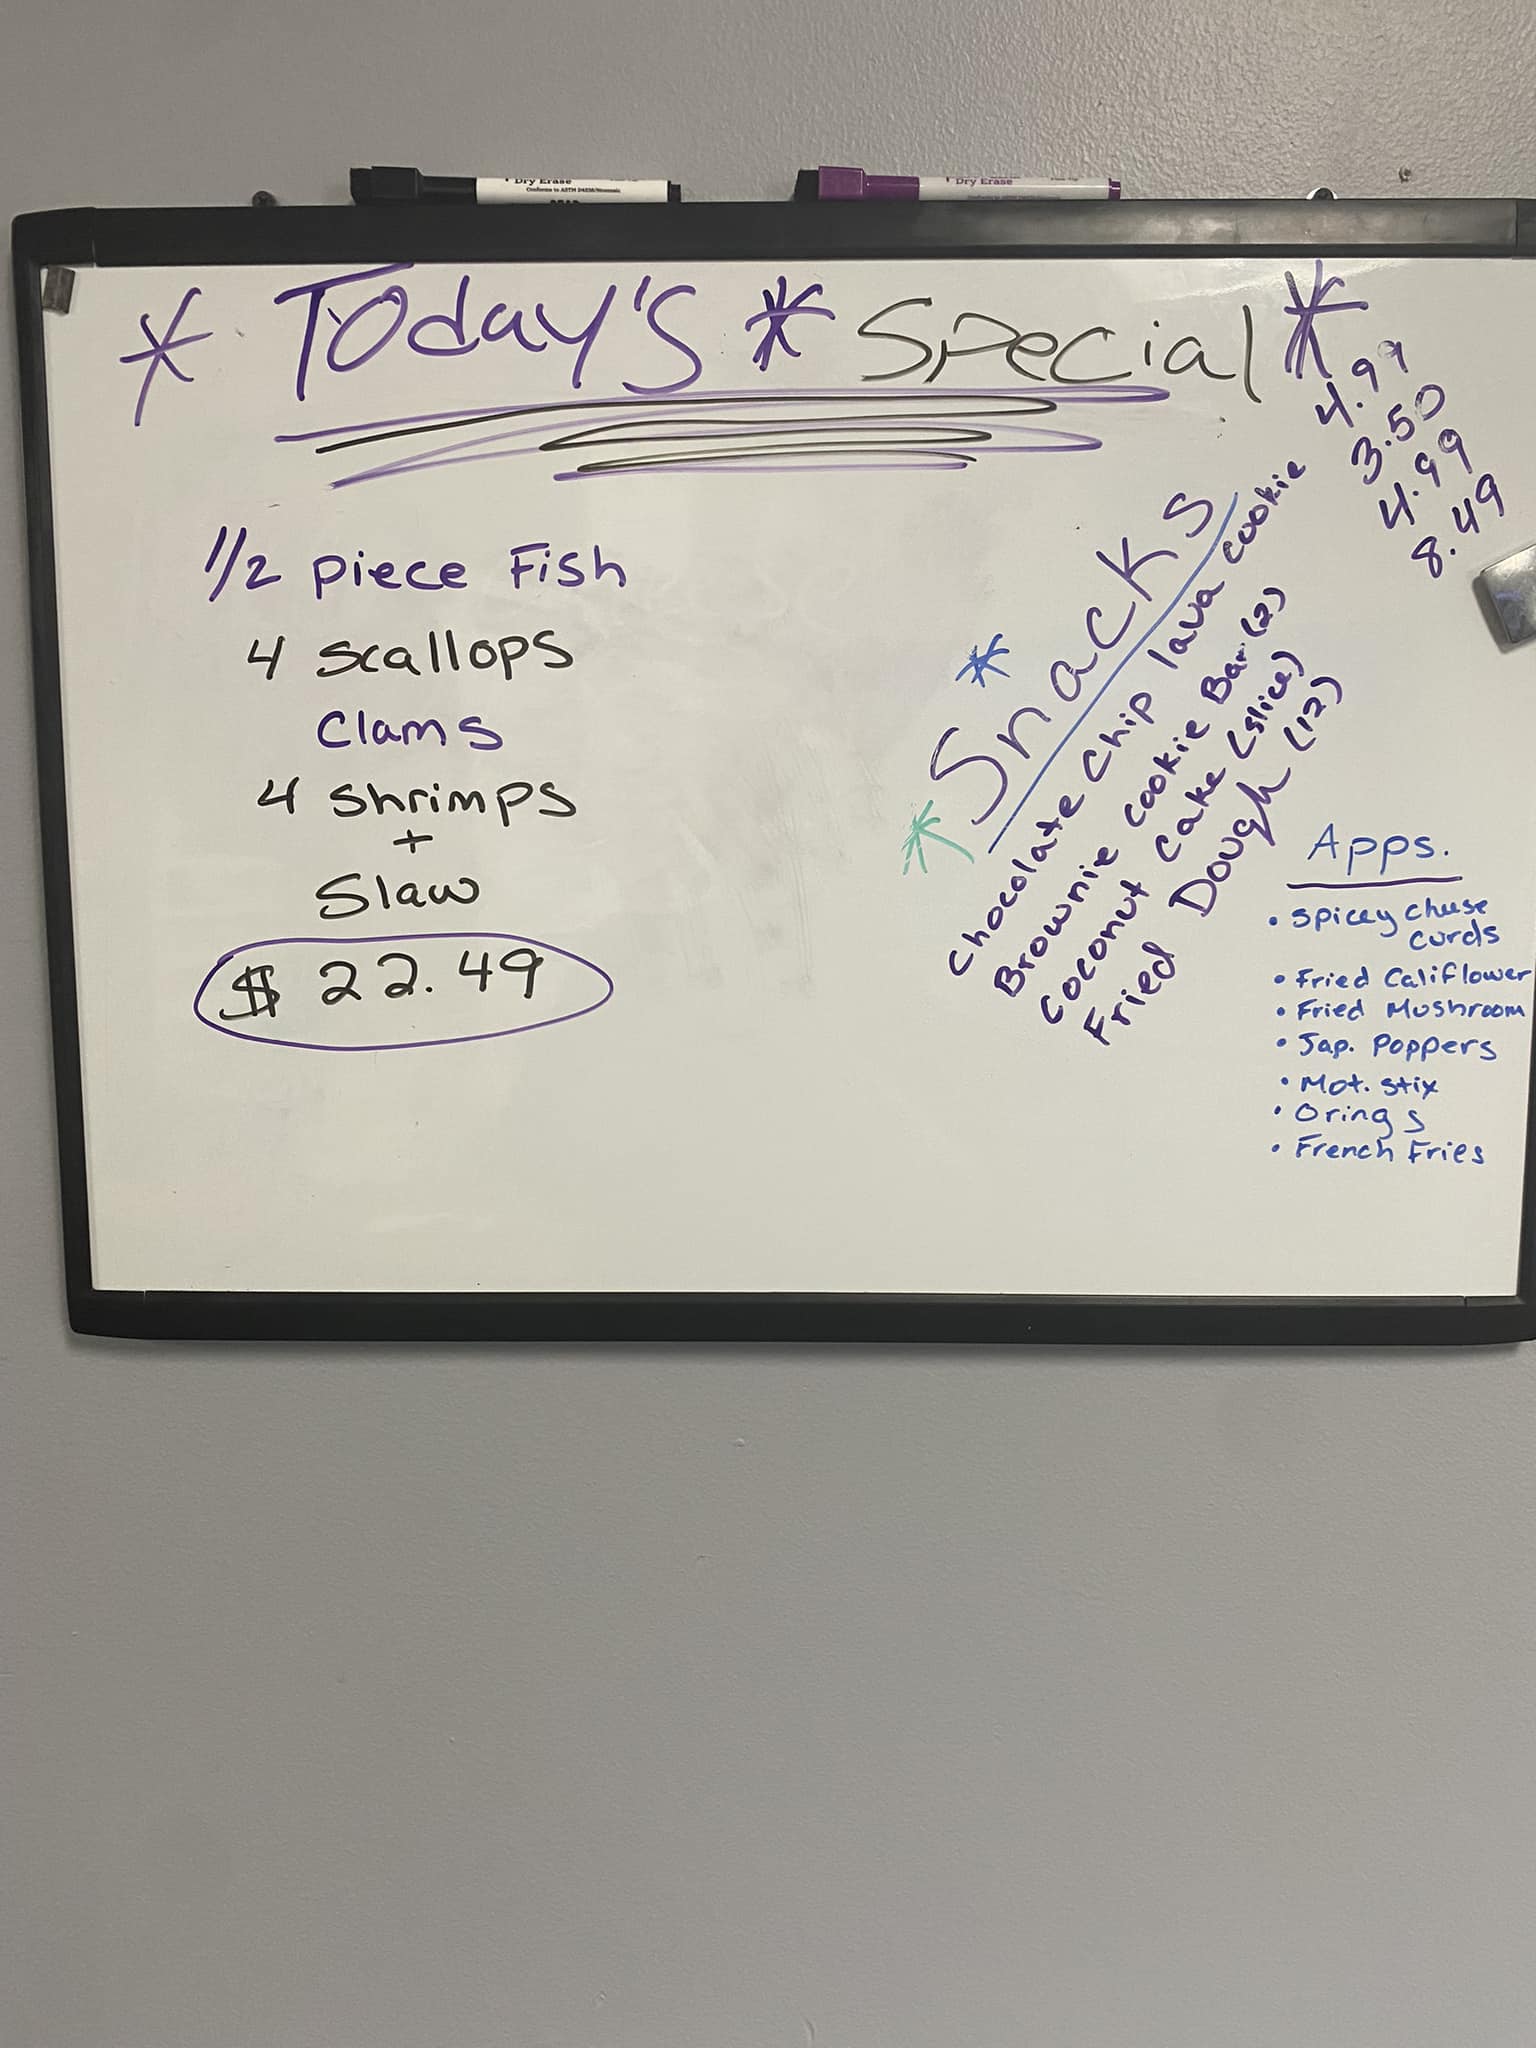 Dry Erase
Conforms to ASTM D4236
Dry Erase
* Today's * Special *
1/2 piece Fish
4 scallops
Clams
4 shrimps
+
Slaw
$ 22.49
* Snacks *
Chocolate Chip lava cookie 4.99
Brownie cookie Bar (2) 3.50
Coconut Cake (slice) 4.99
Fried Dough (12) 8.49
Apps.
• Spicey cheese
curds
• Fried Califlower
• Fried Mushroom
• Jap. Poppers
• Mot. stix
• Orings
• French Fries